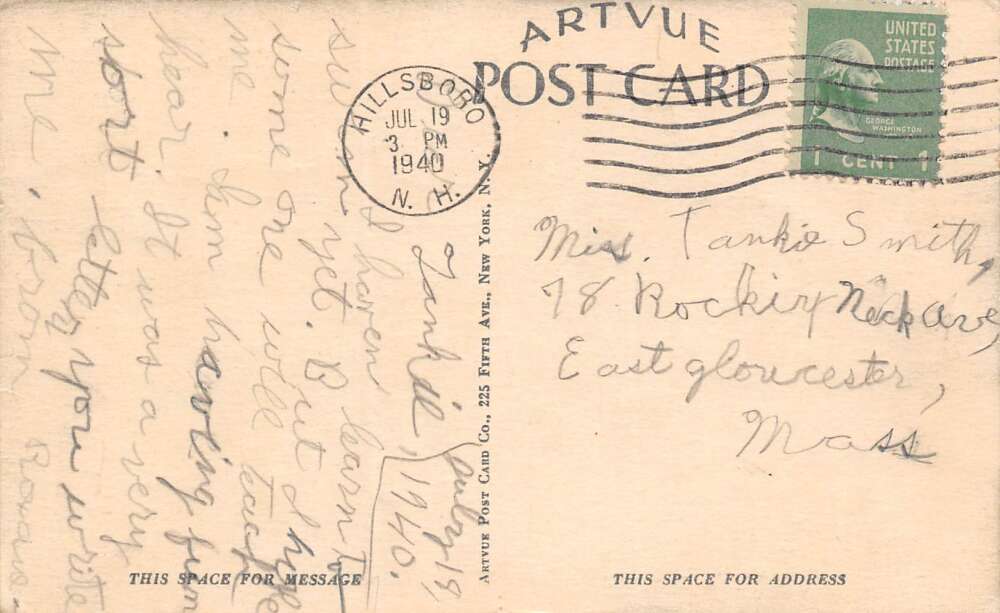 ARTVUE
POST CARD
HILLSBORO
JUL 19
3 PM
1940
N. H.
UNITED
STATES
POSTAGE
GEORGE
WASHINGTON
1 CENT 1
July 18,
1940.
Tankie,
I haven learn to
swim yet. But I hope
some one will teach
me. I'm having fun
hear. It was a very
short letter you write
me. from
ARTVUE POST CARD CO., 225 FIFTH AVE., NEW YORK, N. Y.
Miss. Tankie Smith,
78 Rockiry Neck ave,
East gloucester,
Mass
THIS SPACE FOR MESSAGE
THIS SPACE FOR ADDRESS